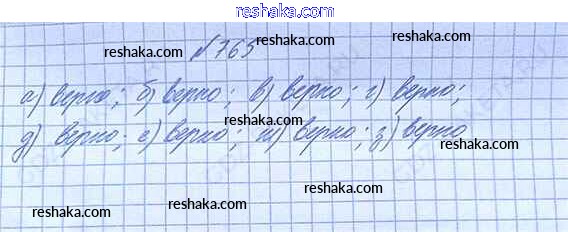 reshaka.com
reshaka.com
№765 reshaka.com
reshaka.com
а) верно; б) верно; в) верно; г) верно;
reshaka.com
д) верно; е) верно; ж) верно; з) верно
reshaka.com
reshaka.com
reshaka.com
reshaka.com
reshaka.com
reshaka.com